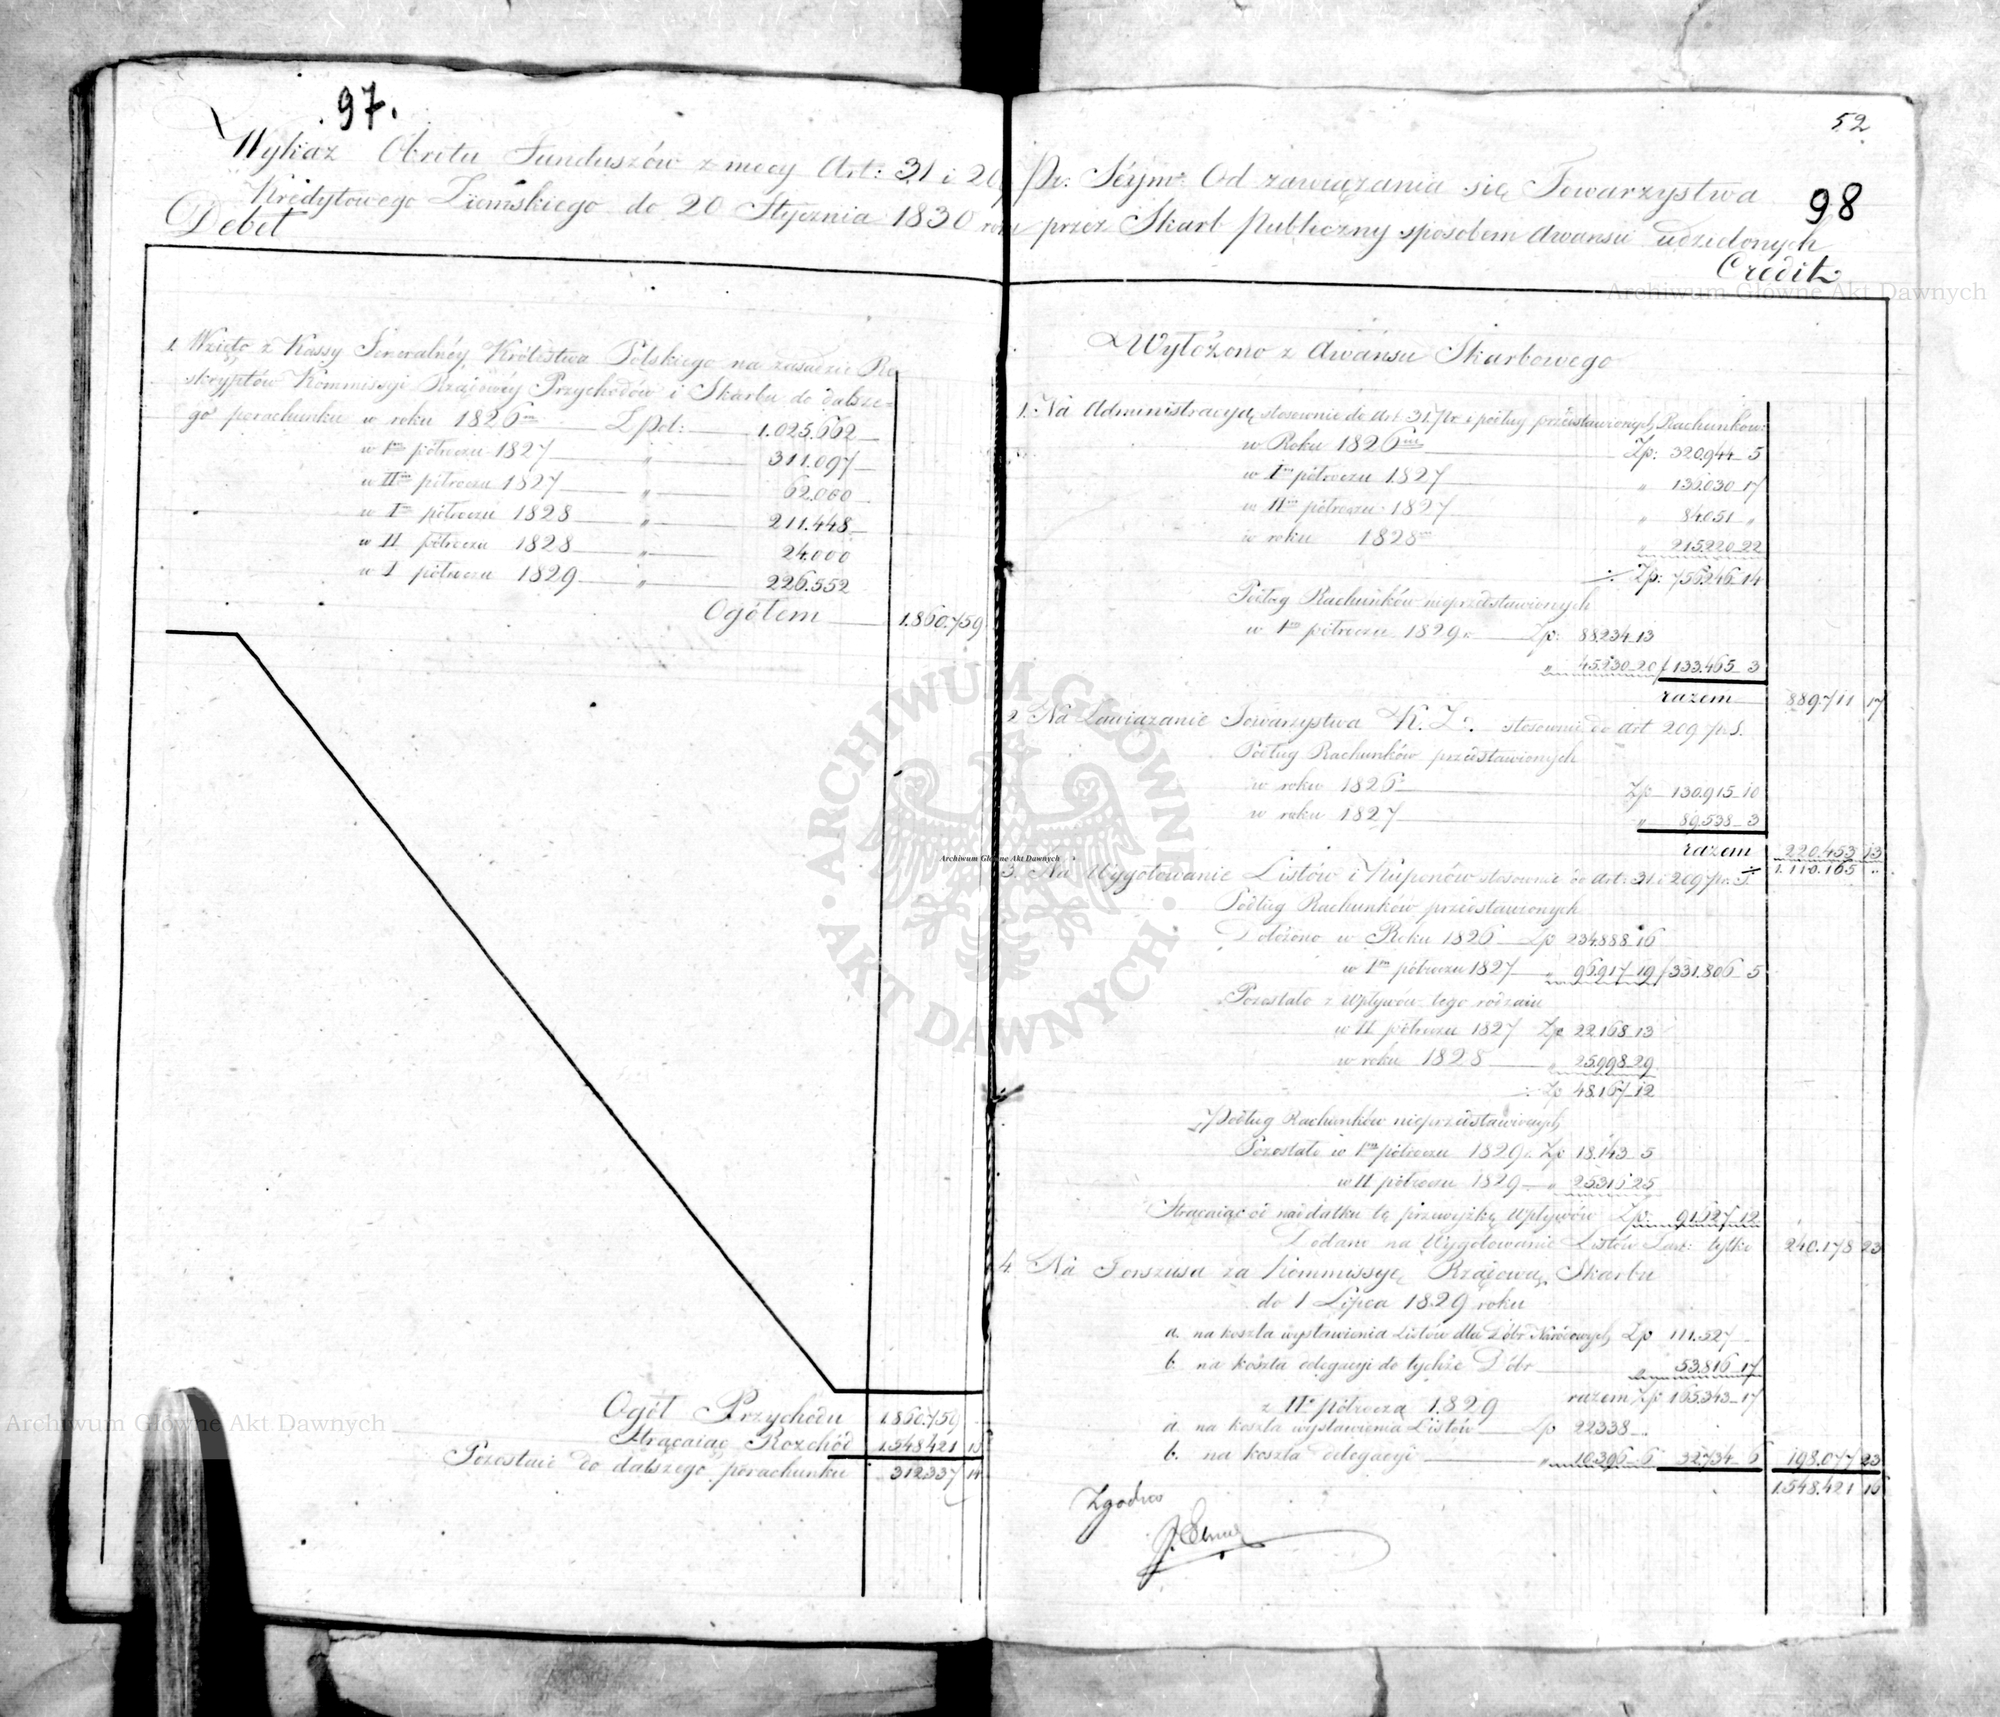 97.
Wykaz Obrotu Funduszów z mocy Art: 31 i 209
Kredytowego Ziemskiego do 20 Stycznia 1830 roku
Debet
1. Wzięto z Kassy Jeneralnéy Królestwa Polskiego na zasadzie Re
skryptów Kommissyi Rządowéy Przychodów i Skarbu do dalsze-
go porachunku w roku 1826m Zpol: 1.025.662
w Im półroczu 1827 " 311.097
w IIm półroczu 1827 " 62.000
w Im półroczu 1828 " 211.448
w II półroczu 1828 " 24.000
w I półroczu 1829 " 226.552
Ogółem 1.860.759
Ogół Przychodu 1.860.759
Strącaiąc Rozchód 1.548.421 15
Pozostaie do dalszego porachunku 312.337 14
52
Pr: Séym: Od zawiązania się Towarzystwa
98
przez Skarb Publiczny sposobem Awansu udzielonych
Credit
Wyłożono z Awansu Skarbowego
1. Na Administracyą stosownie do Art 31 Pr i podług przedstawionych Rachunków:
w Roku 1826m Zp: 320.944 5
w Im półroczu 1827 " 136.030 17
w IIm półroczu 1827 " 84.051 "
w roku 1828m " 215.220 22
Zp: 756.246 14
Podług Rachunków nieprzedstawionych
w Im półroczu 1829 Zp: 88.234 13
" 45.230 20 133.465 3
razem 889.711 17
2. Na Zawiązanie Towarzystwa K. Z. stosownie do Art 209 Pr. S.
Podług Rachunków przedstawionych
w roku 1826 Zp 130.915 10
w roku 1827 " 89.538 3
razem 220.453 13
1.110.165 "
3. Na Wygotowanie Listów i Kuponów stosownie do Art: 31 i 209 Pr. S.
Podług Rachunków przedstawionych
Dołożono w Roku 1826 Zp 234.888 16
w Im półroczu 1827 " 96.917 19 331.806 5
Pozostało z wpływów tego rodzaiu
w II półroczu 1827 Zp 22.168 13
w roku 1828 " 25.998 29
Zp 48.167 12
Podług Rachunków nieprzedstawionych
Pozostało w Im półroczu 1829 Zp 18.143 5
w II półroczu 1829 " 25.316 25
Strącaiąc od naddatku tę przewyżkę wpływów Zp: 91.627 12
Dodano na Wygotowanie Listów Zast: tylko 240.178 23
4. Na Forszusa za Kommissyę Rządową Skarbu
do 1 Lipca 1829 roku
a. na koszta wystawienia Listów dla Dóbr Narodowych Zp 111.527
b. na koszta delegacyi do tychże Dóbr " 53.816 17
razem Zp 165.343 17
z IIo półrocza 1829
a. na koszta wystawienia Listów Zp 22338
b. na koszta delegacyi " 10.396 6 32734 6 198.077 23
1.548.421 16
Zgodno
Archiwum Główne Akt Dawnych
Archiwum Główne Akt Dawnych
Archiwum Główne Akt Dawnych
ARCHIWUM GŁÓWNE AKT DAWNYCH